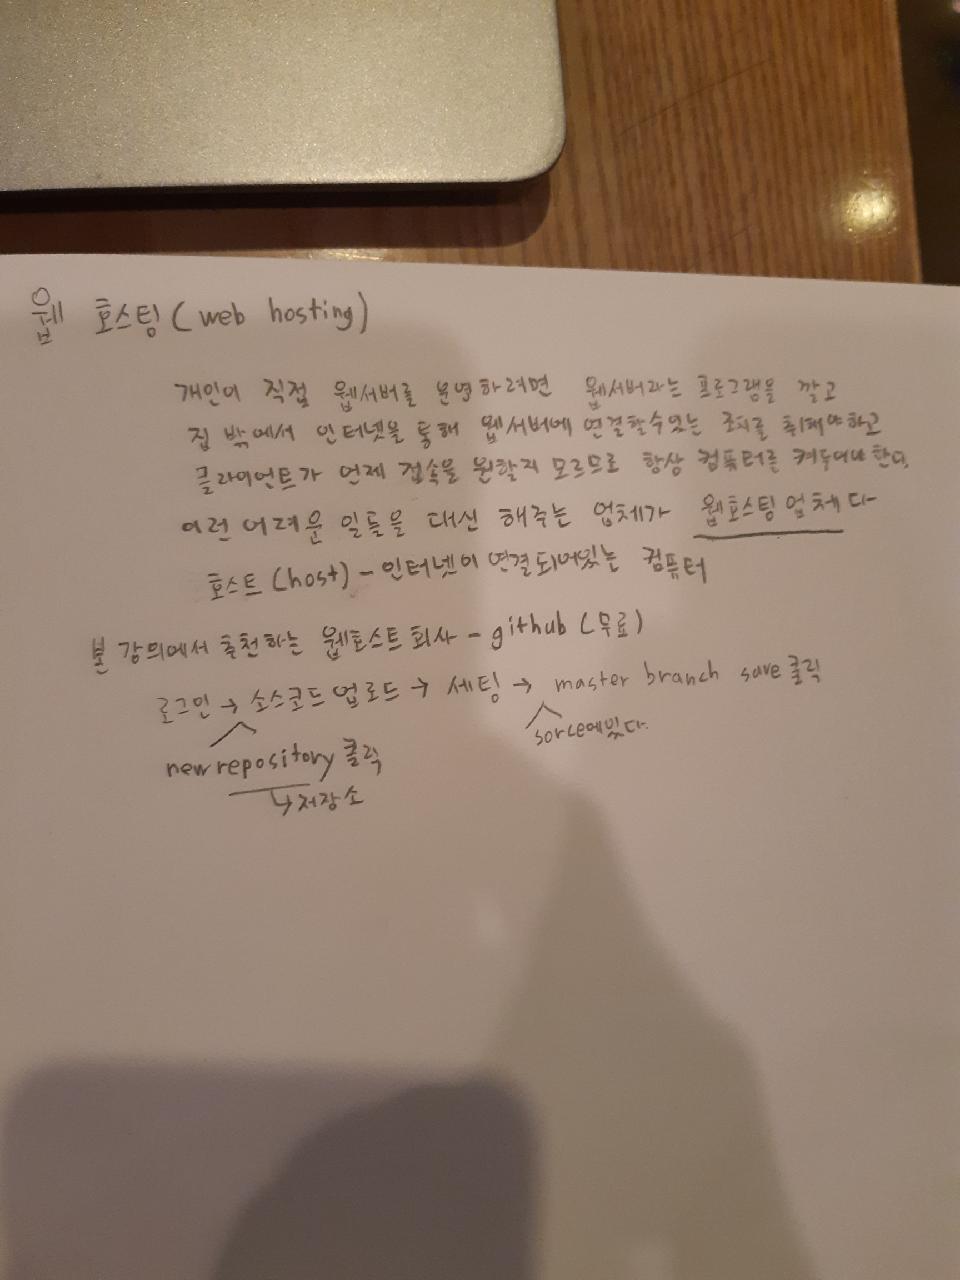 웹 호스팅(web hosting)
개인이 직접 웹서버를 운영하려면 웹서버라는 프로그램을 깔고
집 밖에서 인터넷을 통해 웹서버에 연결할수있는 조치를 취해야하고
클라이언트가 언제 접속을 원할지 모르므로 항상 컴퓨터를 켜두어야 한다.
이런 어려운 일들을 대신 해주는 업체가 웹호스팅업체다
호스트(host) - 인터넷이 연결되어있는 컴퓨터
본 강의에서 추천하는 웹호스트회사 - github(무료)
로그인 → 소스코드 업로드 → 세팅 → master branch save클릭
sorce에있다.
new repository 클릭
↳저장소